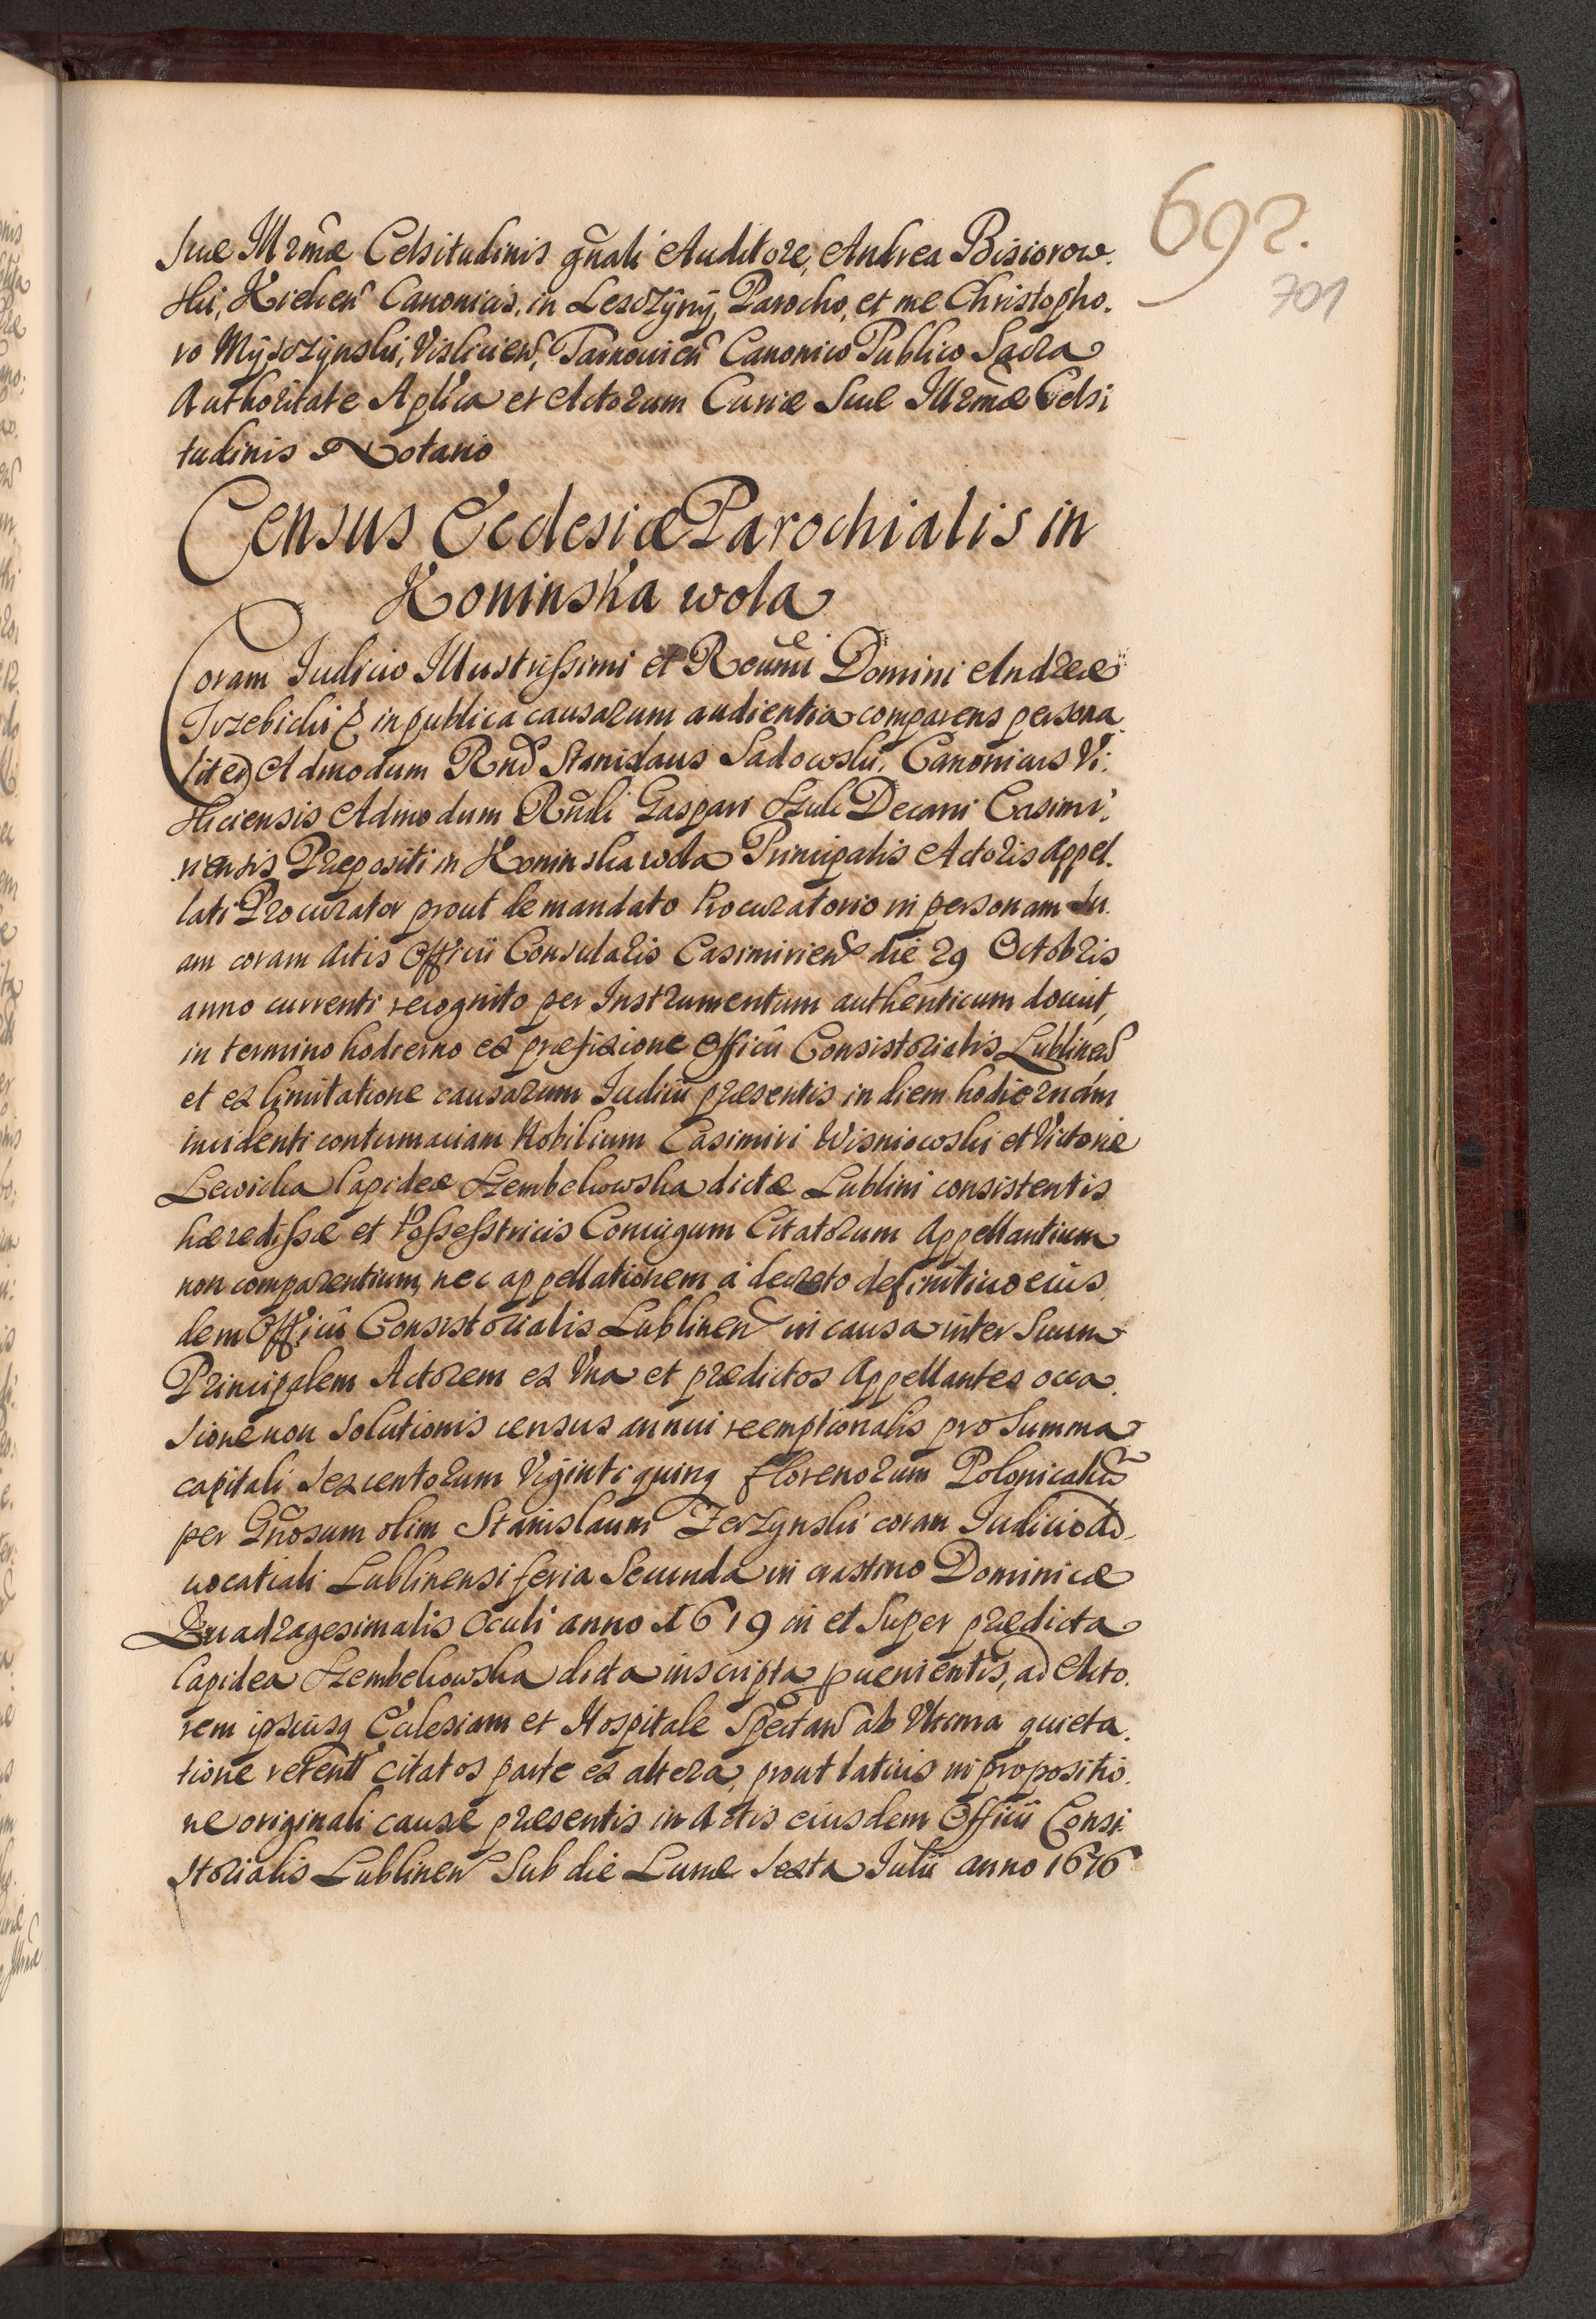 692.
701
Suæ Illrmæ Celsitudinis gnali Auditore, Andrea Bisiorow.
ski, Kielcen Canonicis, in Leszczÿnÿ, Parocho, et me Christopho.
ro Mÿszczÿnski, Visliciens, Tarnovien Canonico Publico Sacra
Authoritate Aplica et Actorum Curiæ Suæ Illrmæ Celsi
tudinis Notario
Census Ecclesiæ Parochialis in
Koninska wola
Coram Iudicio Illustrissimi et Reverdmi Domini Andreæ
Trzebicki & in publica causarum audientia comparens persona
liter Admodum Rnd Stanislaus Sadowski, Canonicus Vi.
sliciensis Admodum Rndi Gaspari Szulc Decani Casimi.
riensis Præpositi in Koninska wola Principalis Actoris Appel.
lati Procurator prout de mandato Procuratorio in personam Su.
am coram Actis Officii Consularis Casimirien die 29 Octobris
anno currenti recognito per Instrumentum authenticum docuit,
in termino hodierno ex præfixione Officii Consistorialis Lublinen
et ex limitatione causarum Iudicii præsentis in diem hodiernam
incidenti contumaciam Nobilium Casimiri Wisniowski et Victoriæ
Lewicka lapideæ Szembekowska dictæ Lublini consistentis
hæredissæ et Possesstricis Coniugum Citatorum Appellantium
non comparentium, nec appellationem a decreto definitivo eius
dem Officii Consistorialis Lublinen in causa inter Suum
Principalem Actorem ex Vna et prædictos Appellantes occa.
sione non Solutionis census annui reemptionalis pro Summa
capitali Sexcentorum Viginti quinq Florenorum Polonicalium
per Gnosum olim Stanislaum Zerzynski coram Iudicio Ad.
vocatiali Lublinensi feria Secunda in crastino Dominicæ
Quadragesimalis Oculi anno 1619 in et Super prædicta
lapidea Szembekowska dicta inscripta pvenientis, ad Acto.
rem ipsiusq Ecclesiam et Hospitale Spectan ab Vltima quieta.
tione retent citatos parte ex altera, prout latius in propositio.
ne originali causæ præsentis in Actis eiusdem Officii Consi.
storialis Lublinen Sub die Lunæ Sexta Iulii anno 1676